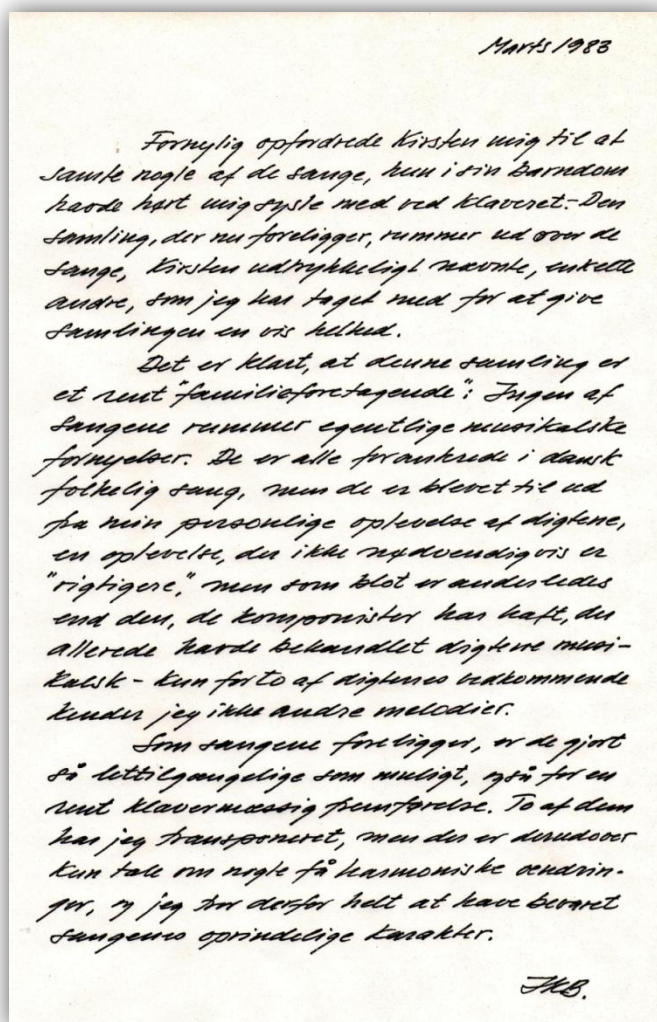 Marts 1983
Fornylig opfordrede Kirsten mig til at
samle nogle af de sange, hun i sin barndom
havde hørt mig sysle med ved klaveret. - Den
samling, der nu foreligger, rummer ud over de
sange, Kirsten udtrykkeligt nævnte, enkelte
andre, som jeg har taget med for at give
samlingen en vis helhed.
Det er klart, at denne samling er
et rent "familieforetagende": Ingen af
sangene rummer egentlige musikalske
fornyelser. De er alle forankrede i dansk
folkelig sang, men de er blevet til ud
fra min personlige oplevelse af digtene,
en oplevelse, der ikke nødvendigvis er
"rigtigere," men som blot er anderledes
end den, de komponister har haft, der
allerede havde behandlet digtene musi-
kalsk - kun for to af digtenes vedkommende
kender jeg ikke andre melodier.
Som sangene foreligger, er de gjort
så lettilgængelige som muligt, også for en
rent klavermæssig fremførelse. To af dem
har jeg transponeret, men der er derudover
kun tale om nogle få harmoniske ændrin-
ger, og jeg tror derfor helt at have bevaret
sangenes oprindelige karakter.